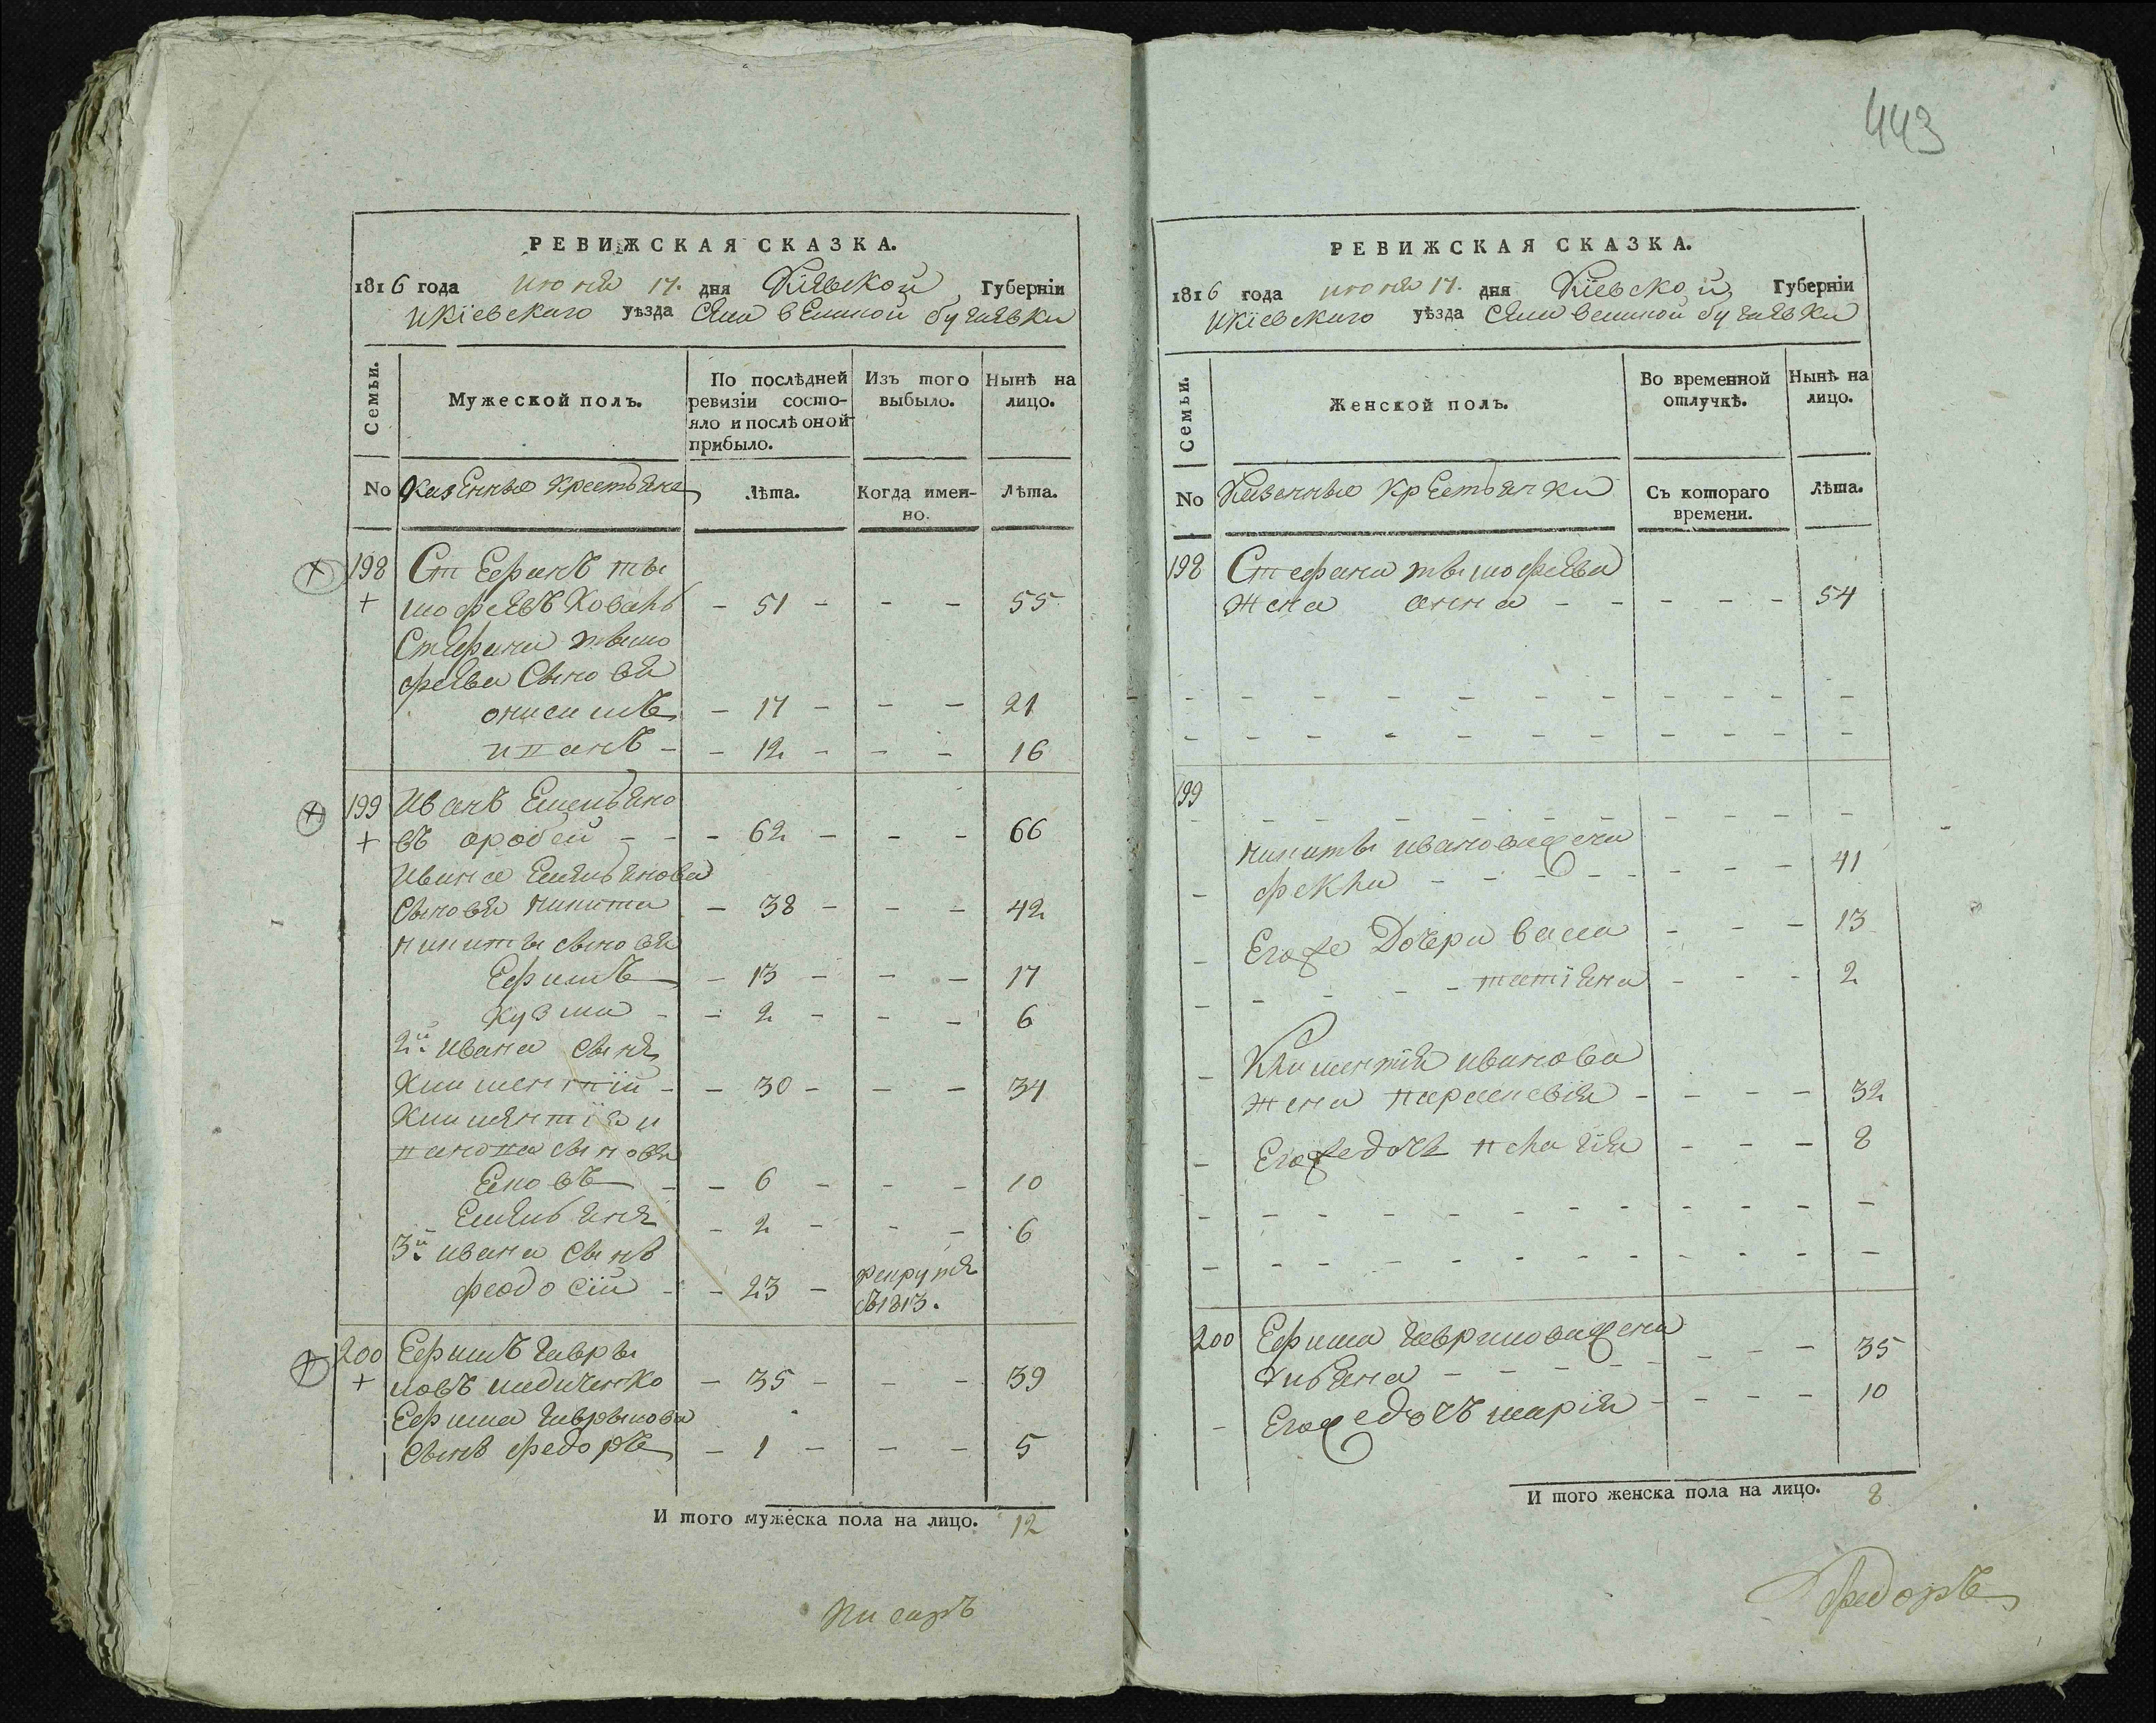 443
РЕВИЖСКАЯ СКАЗКА.
1816 года июня 17. дня Кіевской Губерніи
Икіевскаго уѣзда села великой бугаевки
Семьи.
Мужеской полъ.
По послѣдней ревизіи состо-
яло и послѣ оной
прибыло.
Изъ того
выбыло.
Нынѣ на
лицо.
No
Казенные крестьяне
Лѣта.
Когда имен-
но.
Лѣта.
198 Стефанъ ти
мофеевъ Коваль - 51 - - - 55
Стефана тимо
феева Сынове
онисимъ - 17 - - - 21
- 12 - - - 16
199 Иванъ Емельяно
въ - 62 - - - 66
Ивана Емельянова
Сынове никита - 38 - - - 42
никиты сынове
Ефимъ - 13 - - 17
кузма - - 2 - - - 6
2й. ивана сынъ
Климентій - - 30 - - - 34
Климентія и
сынове
- - 6 - - - 10
Емельянъ - 2 - - - 6
3й. ивана Сынъ
феодосій - - 23 - рекрутъ
въ 1813.
200 Ефимъ Гаври
ловъ - 35 - - - 39
Ефима Гаврилова
Сынъ федоръ - 1 - - - 5
И того мужеска пола на лицо. 12
Писаръ
РЕВИЖСКАЯ СКАЗКА.
1816 года июня 17. дня Кіевской Губерніи
Икіевскаго уѣзда села великой бугаевки
Семьи.
Женской полъ.
Во временной
отлучкѣ.
Нынѣ на
лицо.
No
Казенные крестьянки
Съ котораго
времени.
Лѣта.
198 Стефана тимофеева
жена анна - - - - - 54
199
никиты иванова жена
фекла - - - - - 41
Егоже Дочери васса - - - 13
татіяна - - - 2
Климентія иванова
жена параскевія - - - - 32
Егоже дочь пелагія - - - 8
200 Ефима Гаврилова жена
улияна - - - - - 35
Егоже дочъ марія - - - - 10
И того женска пола на лицо. 8
Федоръ